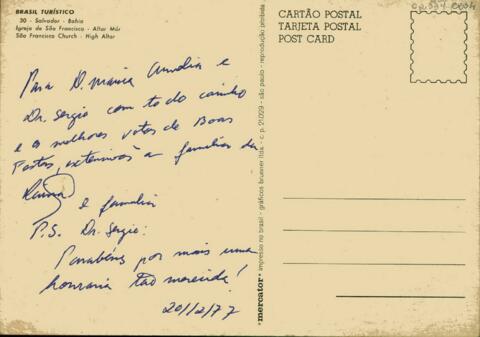 BRASIL TURÍSTICO
30 - Salvador - Bahia
Igreja de São Francisco - Altar Mór
São Francisco Church - High Altar
Para D. Maria Amélia e
Dr. Sergio com todo carinho
e os melhores votos de Boas
Festas, extensivos a família da
e familia
P.S. Dr. Sergio:
Parabéns por mais uma
honraria tão merecida!
20/12/77
CARTÃO POSTAL
TARJETA POSTAL
POST CARD
"mercator" impresso no brasil - gráficos brunner ltda. - c. p. 21.029 - são paulo - reprodução proibida